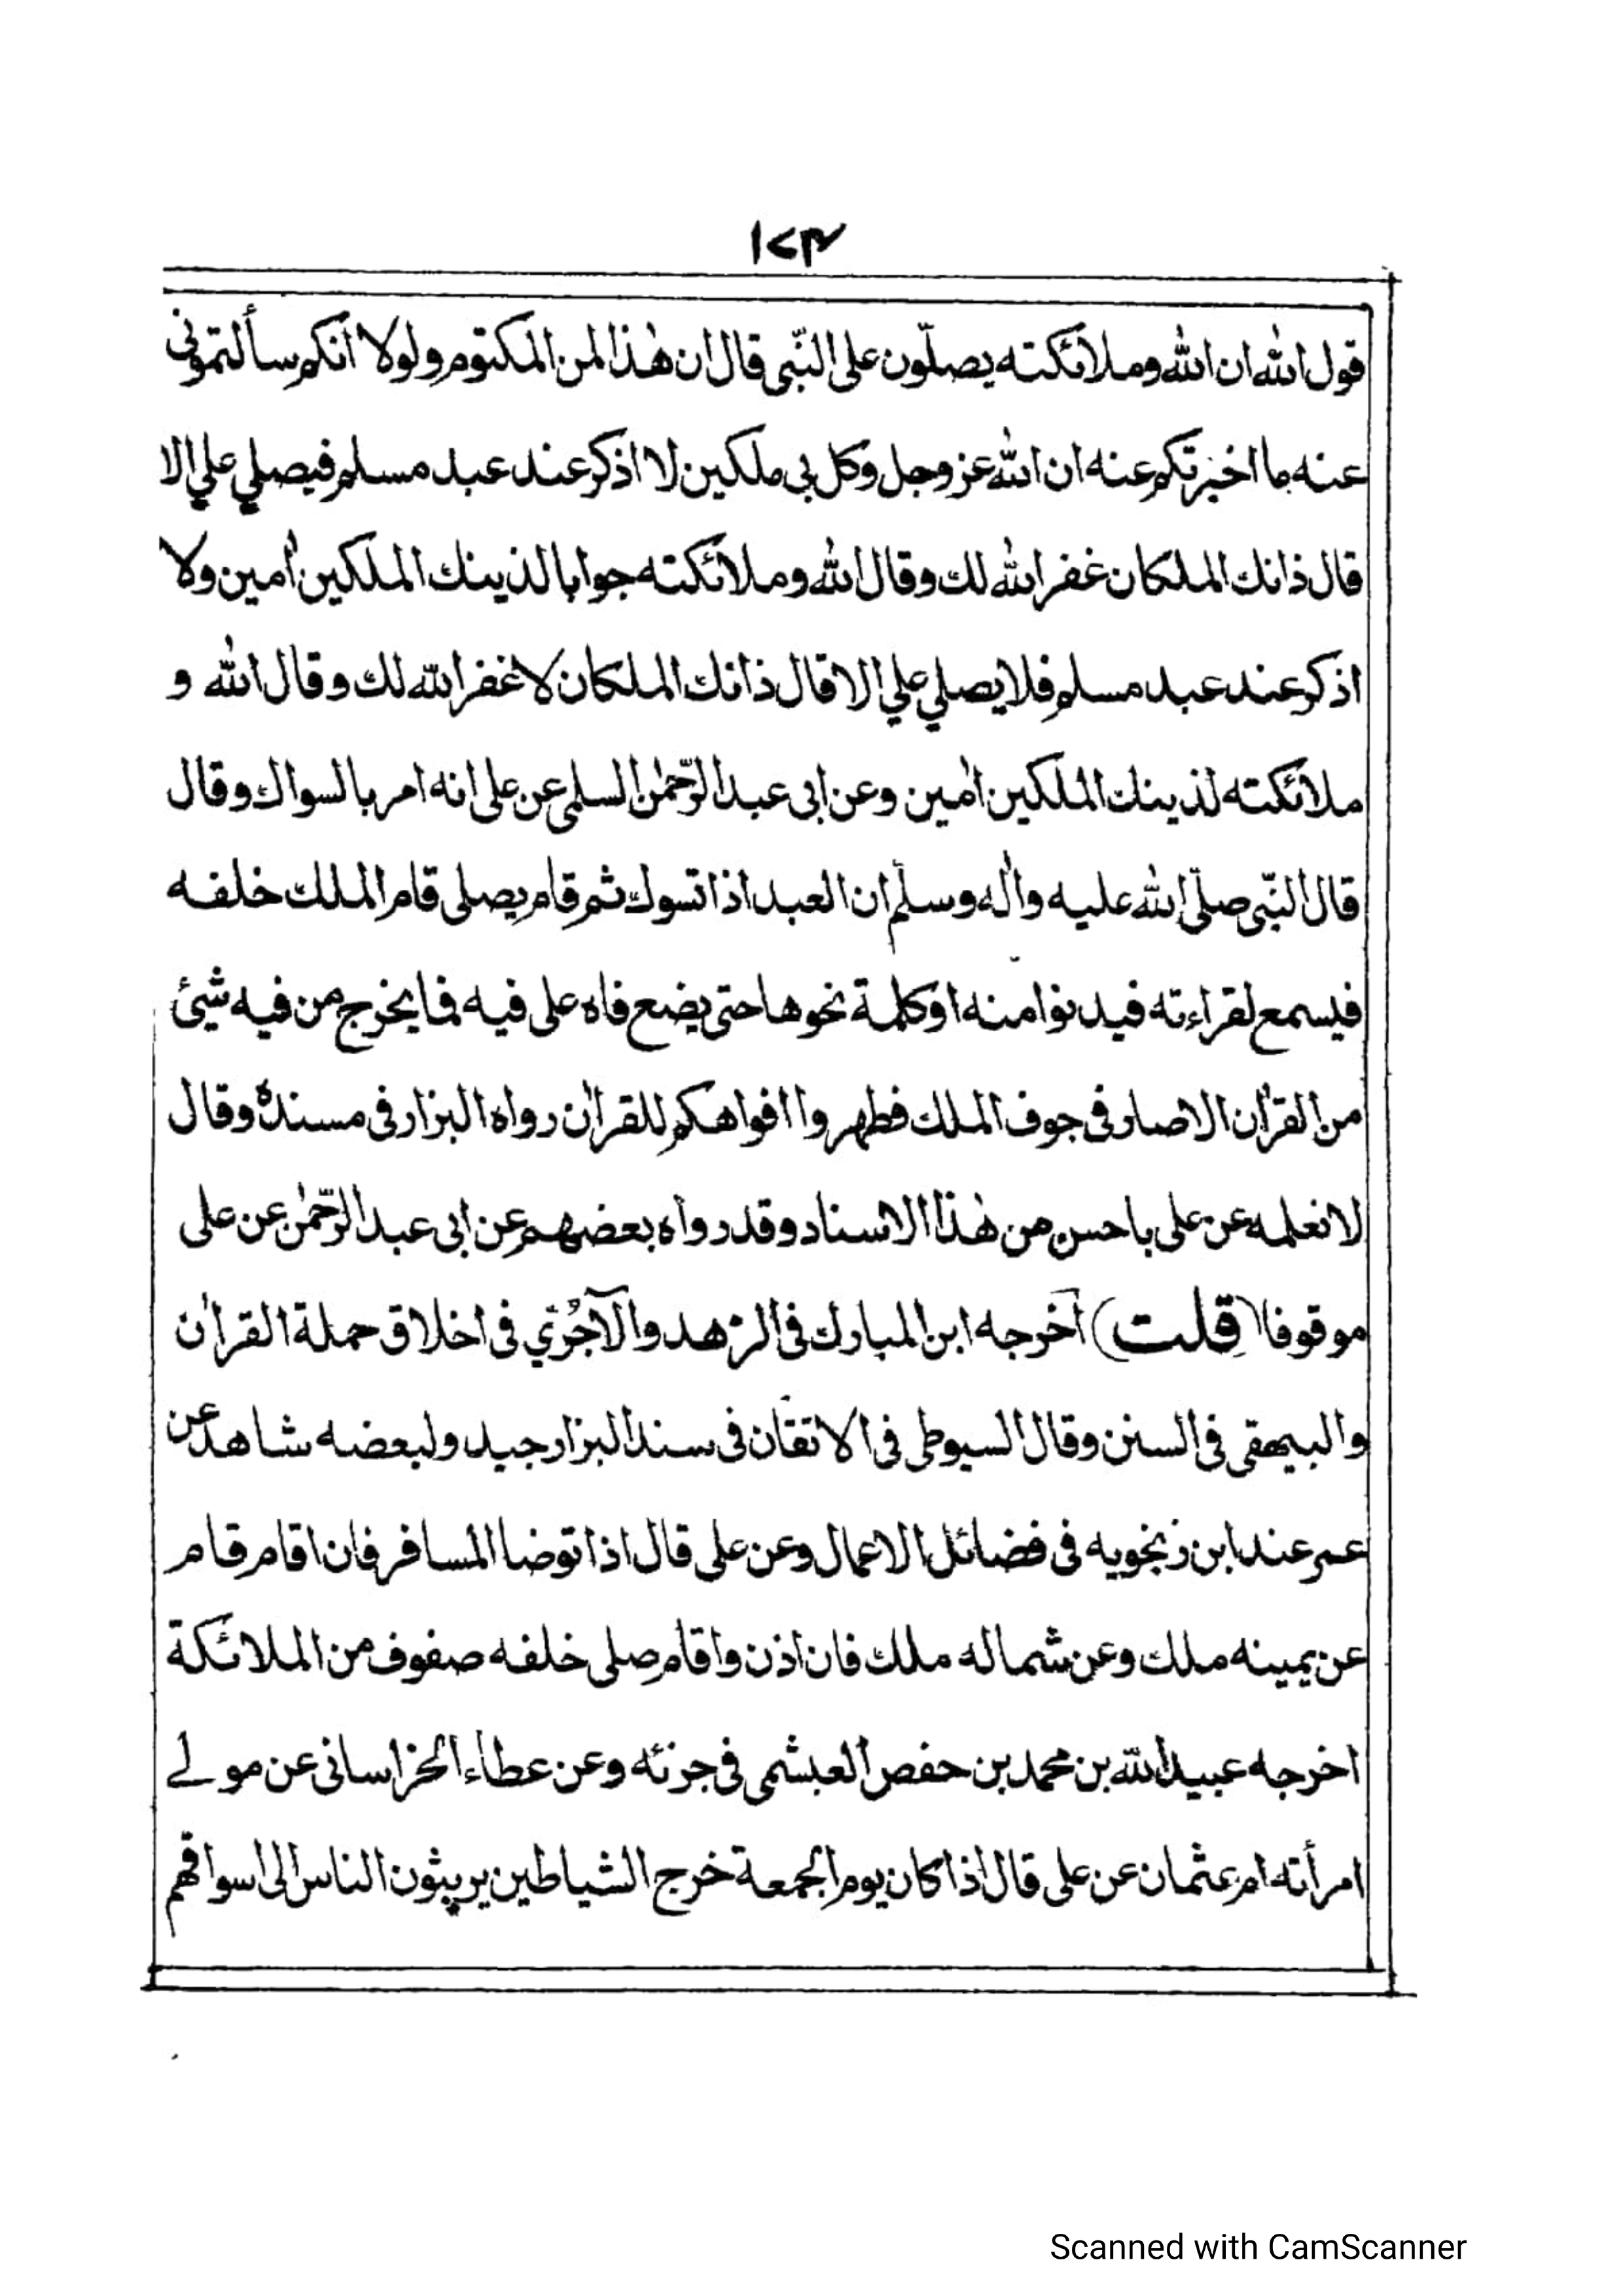 ١٧٤
قول الله ان الله وملائكته يصلّون على النّبى قال ان هٰذا لمن المكتوم ولولا انكم سألتمونى
عنه ما اخبرتكم عنه ان الله عز وجل وكل بى ملكين لا اذكر عند عبد مسلم فيصلي علي الا
قال ذانك الملكان غفر الله لك وقال الله وملائكته جوابا لذينك الملكين اٰمين ولا
اذكر عند عبد مسلم فلا يصلي علي الا قال ذانك الملكان لا غفر الله لك وقال الله و
ملائكته لذينك الملكين اٰمين وعن ابى عبد الرّحمٰن السلمى عن على انه امر بالسواك وقال
قال النّبى صلّى الله عليه واٰله وسلّم ان العبد اذا تسوك ثم قام يصلى قام الملك خلفه
فيسمع لقراءته فيدنوا منه او كلمة نحوها حتى يضع فاه على فيه فما يخرج من فيه شيئ
من القراٰن الا صار فى جوف الملك فطهروا افواهكم للقراٰن رواه البزار فى مسنده وقال
لا نعلمه عن على باحسن من هٰذا الاسناد وقد رواه بعضهم عن ابى عبد الرّحمٰن عن على
موقوفا (قلت) اخرجه ابن المبارك فى الزهد والآجُرّي فى اخلاق حملة القراٰن
والبيهقى فى السنن وقال السيوطى فى الاتقان فى سند البزار جيد ولبعضه شاهد عن
عمر عند ابن زنجويه فى فضائل الاعمال وعن على قال اذا توضا المسافر فان اقام قام
عن يمينه ملك وعن شماله ملك فان اذن واقام صلى خلفه صفوف من الملائكة
اخرجه عبيد الله بن محمد بن حفص العبشمى فى جزئه وعن عطاء الخراسانى عن مولے
امرأته ام عثمان عن على قال اذا كان يوم الجمعة خرج الشياطين يربثون الناس الى اسواقهم
Scanned with CamScanner